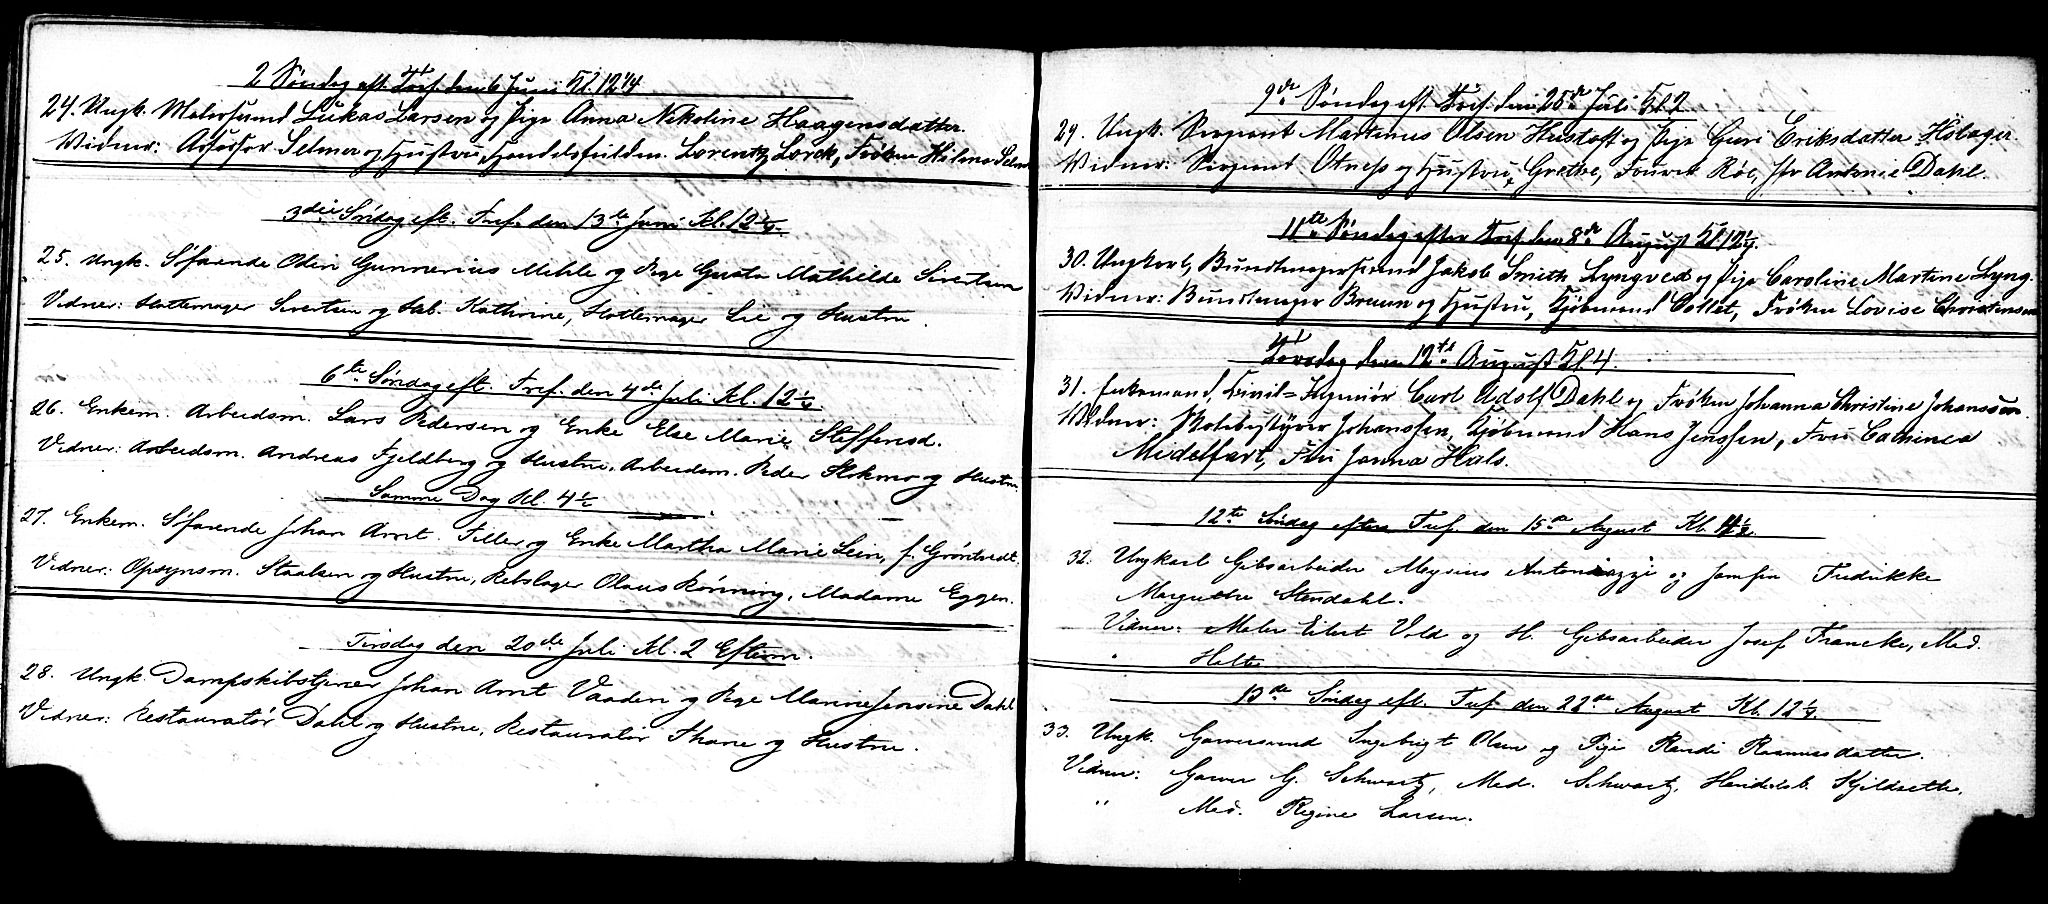 2 Søndag eft. Tref. den 6 Juni Kl. 12 1/4
24. Ungk. Malersvend Lukas Larsen og Pige Anna Nikoline Haagensdatter.
Vidner: Assessor Selmer og Hustru, Handelsfuldm. Lorentz Lorck, Frøken Hilma Selmer
3die Søndag eft. Tref. den 13de Juni Kl. 12 1/4.
25. Ungk. Søfarende Odin Gunnerius Mehle og Pige Gusta Mathilde Sivertsen
Vidner: Hattemager Sivertsen og Kathrine, Hattemager Lie og Hustru.
6te Søndag eft. Tref. den 4de Juli Kl. 12 1/4
26. Enkem. Arbeidsm. Lars Pedersen og Enke Else Marie Steffensd.
Vidner: Arbeidsm. Andreas Fjeldberg og Hustru, Arbeidsm. Peder Stokmo og Hustru.
Samme Dag Kl. 4 1/2
27. Enkem. Søfarende Johan Arnt Tiller og Enke Martha Marie Lein, f. Grøntvedt.
Vidner: Opsynsm. Staalsen og Hustru, Rebslager Olaus Rønning, Madame Eggen.
Tirsdag den 20de Juli Kl. 2 Efterm.
28. Ungk. Dampskibstjener Johan Arnt Vaaden og Pige Manne Jensine Dahl
Vidner: Restauratør Dahl og Hustru, Restauratør Skare og Hustru.
9de Søndag eft. Tref. den 25de Juli Kl. 2
29. Ungk. Sergeant Martinus Olsen Hustoft og Pige Guri Eriksdatter Hobager.
Vidner: Sergeant Otness og Hustru, Grethe, Fourer Røe, Antonie Dahl.
11te Søndag efter Tref. den 8de August Kl. 12 1/4.
30. Ungkarl, Bundtmagersvend Jakob Smith Lyngved og Pige Caroline Martine Lyng.
Vidner: Bundtmager Bruun og Hustru, Kjøbmand Collet, Frøken Lovise Christensen
Torsdag den 12te August Kl. 4.
31. Enkemand, Civil-Ingeniør Carl Adolf Dahl og Frøken Johanna Christine Johanssen.
Vidner: Skolebestyrer Johanssen, Kjøbmand Hans Jenssen, Fru Caminca
Midelfart, Fru Janna Hals.
12te Søndag efter Tref. den 15de August Kl.
32. Ungkarl Gibsarbeider Aloysius Antoniazzi og Jomfru Fredrikke
Margrethe Stendahl.
Vidner: Maler Eilert Vold og H. Gibsarbeider Josef Francke, Mad.
" Holte
13de Søndag eft. Tref. den 22de August Kl. 12 1/4.
33. Ungk. Garversvend Ingebrigt Olsen og Pige Randi Rasmusdatter.
Vidner: Garver G. Schwartz, Mad. Schwartz, Handelsb. Kjeldsetth,
" Mad. Regine Larsen.